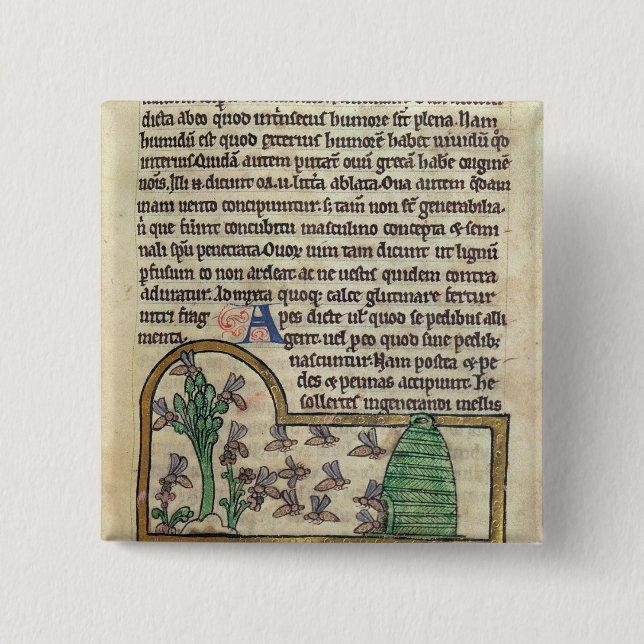 dicta abeo quod intrinsecus humore sit plena. Nam
humidū est quod exterius humorē habet uiuidū qd
interius. Quidā autem putāt ouū grecā habe originē
nois. Illi dicunt oa. u. littā ablata. Oua autem qdam
inani uento concipiuntur. s; tam non st generabilia.
n que fuint concubitu masculino concepta & semi
nali spu penetrata. Quor uim tam dicunt ut lignū
pfusum eo non ardeat ac ne uestis quidem contra
aduratur. Admixta quoq; calce glutinare fertur
uitri frag Apes dicte ul quod se pedibus alli
menta. gent. uel p eo quod sine pedib;
nascuntur. Nam postea & pe
des & pennas accipiunt. he
sollertes ingenerandi mellis